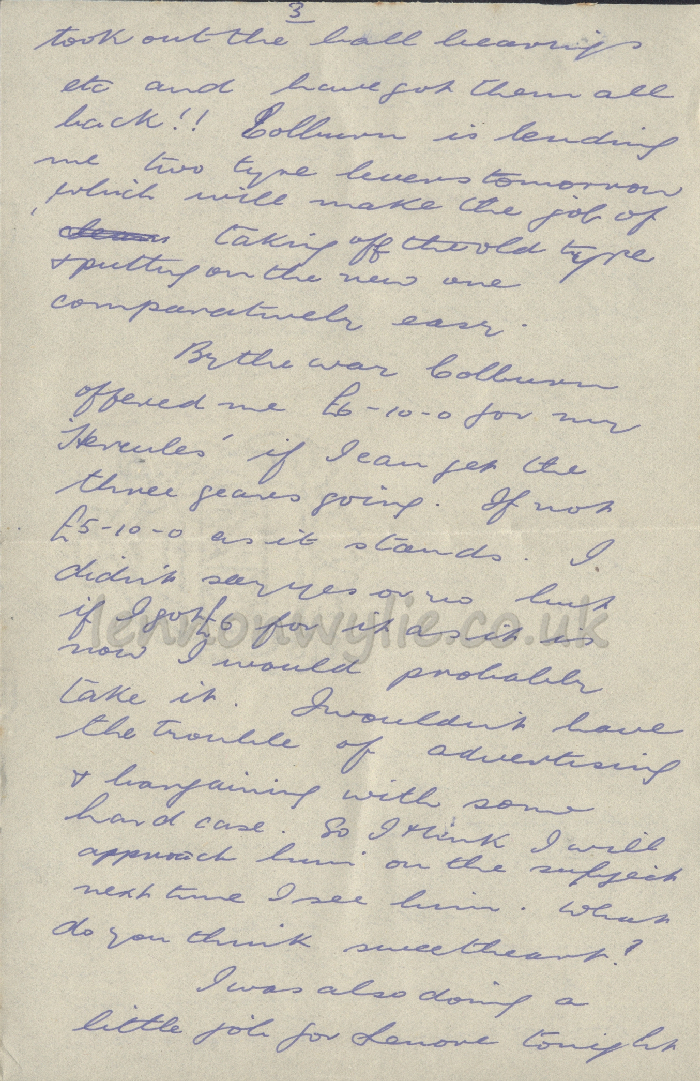 3
took out the ball bearings
etc and have got them all
back!! Colburn is lending
me two tyre levers tomorrow
which will make the job of
taking off the old tyre
& putting on the new one
comparatively easy.
By the way Colburn
offered me £6-10-0 for my
'Hercules' if I can get the
three gears going. If not
£5-10-0 as it stands. I
didn't say yes or no but
if I got £6 for it as it is
now I would probably
take it. I wouldn't have
the trouble of advertising
& bargaining with some
hard case. So I think I will
approach him on the subject
next time I see him. What
do you think sweetheart?
I was also doing a
little job for Lenore tonight
lennonwylie.co.uk